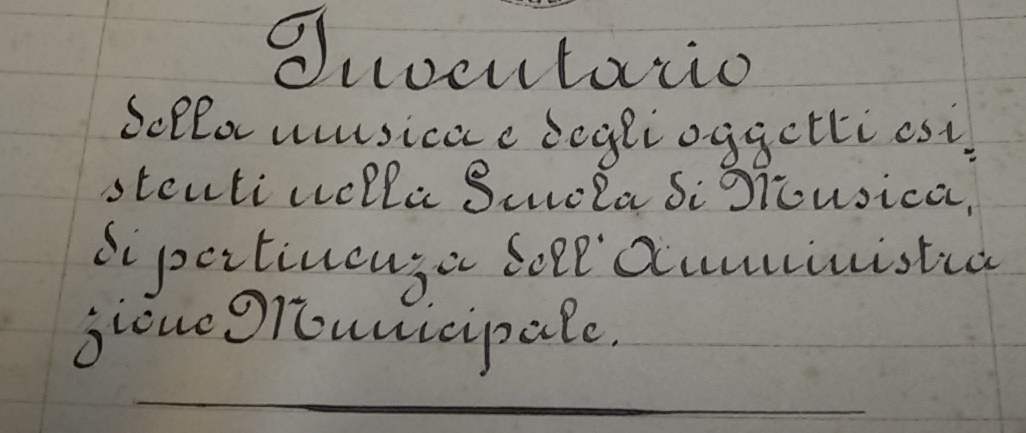 Inventario
della musica e degli oggetti esi=
stenti nella Scuola di Musica,
di pertinenza dell'Amministra
zione Municipale.